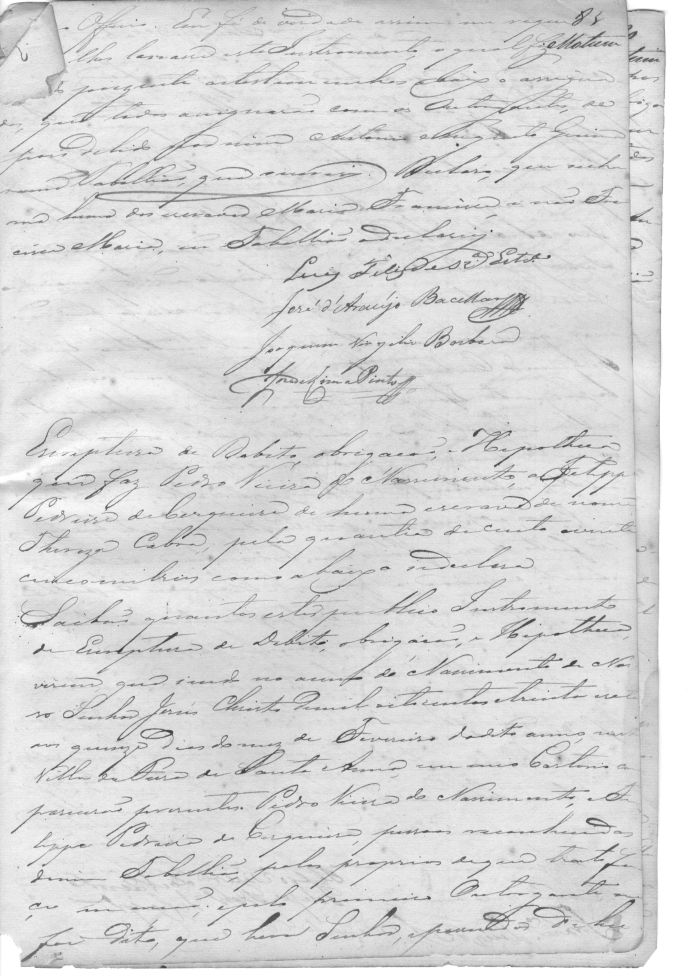 Officio. Em fé de verdade assim me 88
lhes lavrasse este Instrumento, o qual
prezente as testemunhas abaixo
que todos assignarão com os Outorgantes, de
pois de lido por mim Antonio Augusto Guima
Tabellião, que escrevi. Declaro, que
ma huma das escravas Maria Francisca, e não Fran
cisca Maria, eu Tabellião o declarei
Luiz
José d'Araujo Bacellar
Joaquim Virgilio Barbara
José de Lima Pinto
Escriptura de Debito, obrigação, e Hipotheca
que faz Pedro Vieira do Nascimento, a Felippe
Pedreira de Cerqueira de huma escrava de nome
Thereza Cabra, pela quantia de cento e vinte
cinco mil reis como abaixo se declara
Saibão quantos este publico Instrumento
de Escriptura de Debito, obrigação, e Hipotheca
virem que sendo no anno do Nascimento de Nos
so Senhor Jesus Christo de mil oitocentos e trinta e
aos quinze dias do mez de Fevereiro do dito anno nesta
Villa da Feira de Santa Anna, em meu Cartorio a
parecerão prezentes Pedro Vieira do Nascimento, e Fe
lippe Pedreira de Cerqueira, pessoas reconhecidas
de mim Tabellião, pelos proprios de que trato e fa
ço menção; e pelo primeiro Outorgante me
foi dito, que hera Senhor, e possuidor de hu